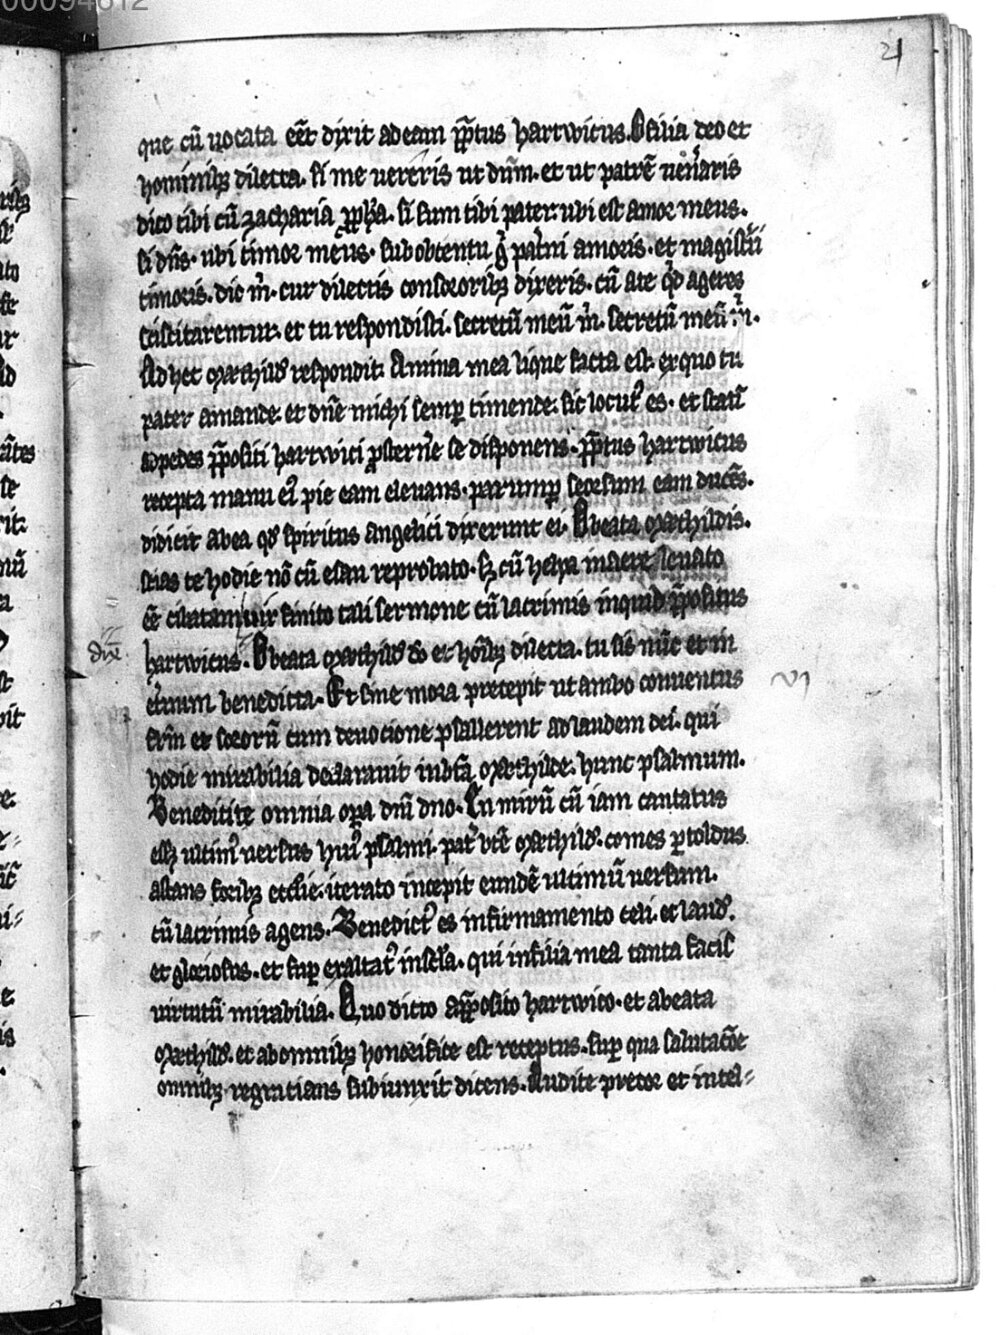 00094612
21
que cū uocata eēt dixit ad eam p̄p̄tus hartwicus. O filia deo et
hominibꝫ dilecta. si me uereris ut dn̄m. et ut patrē uen̄aris
dico tibi cū zacharia ꝓph̄a. si sum tibi pater. ubi est amor meus.
si dn̄s. ubi timor meus. sub obtentu g̊ pat̄ni amoris. et magist̄ii
timoris. dic m̊. cur dilectis consororibꝫ dixeris. cū a te qͥd ageres
sciscitarentur. et tu respondisti. secretū meū m̊. secretū meū m̊.
Ad hec mæthild̕ respondit. Anima mea lique facta est. ex quo tu
pater amande. et dn̄e michi semꝑ timende. sic locut᷒ es. et statī
ad pedes p̄positi hartwici ꝓstern̄e se disponens. p̄p̄tus hartwicus
recepta manu ei᷒ pie eam eleuans. parumꝑ seorsum eam ducēs.
didicit ab ea qđ spiritus angelici dixerunt ei. O beata mæthildis.
scias te hodie nō cū esau reprobato. sꝫ cū helya in aere leuato
finito tali sermone cū lacrimis inquid p̄positus
dixᷓ
hartwicus. O beata mæthild̕ dō et hōībꝫ dilecta. tu sis nūc et in
et̄num benedicta. Et sine mora precepit ut ambo conuentus
VI
fr̄m et sororū cum deuocione psallerent ad laudem dei. qui
hodie mirabilia declarauit in bt̄a mæthilde. hunc psalmum.
Benedicite omnia oꝑa dn̄i dno. En mirū cū iam cantatus
essꝫ ultim᷒ uersus hui᷒ psalmi. pat̄ bt̄e mæthild̕. comes ꝑtoldus
astans foribꝫ ecclie. iterato incepit eundē ultimū uersum.
cū lacrimis agens. Benedict᷒ es in firmamento celi. et laud̕.
et gloriosus. et suꝑ exaltat᷒ in sc̄la. qui in filia mea tanta facis
uirtutū mirabilia. Quo dicto a p̄posito hartwico. et a beata
mæthild̕. et ab omnibꝫ honorifice est receptus. suꝑ qua salutacōe
omnibꝫ regratians subiunxit dicens. Audite precor et intel⸗